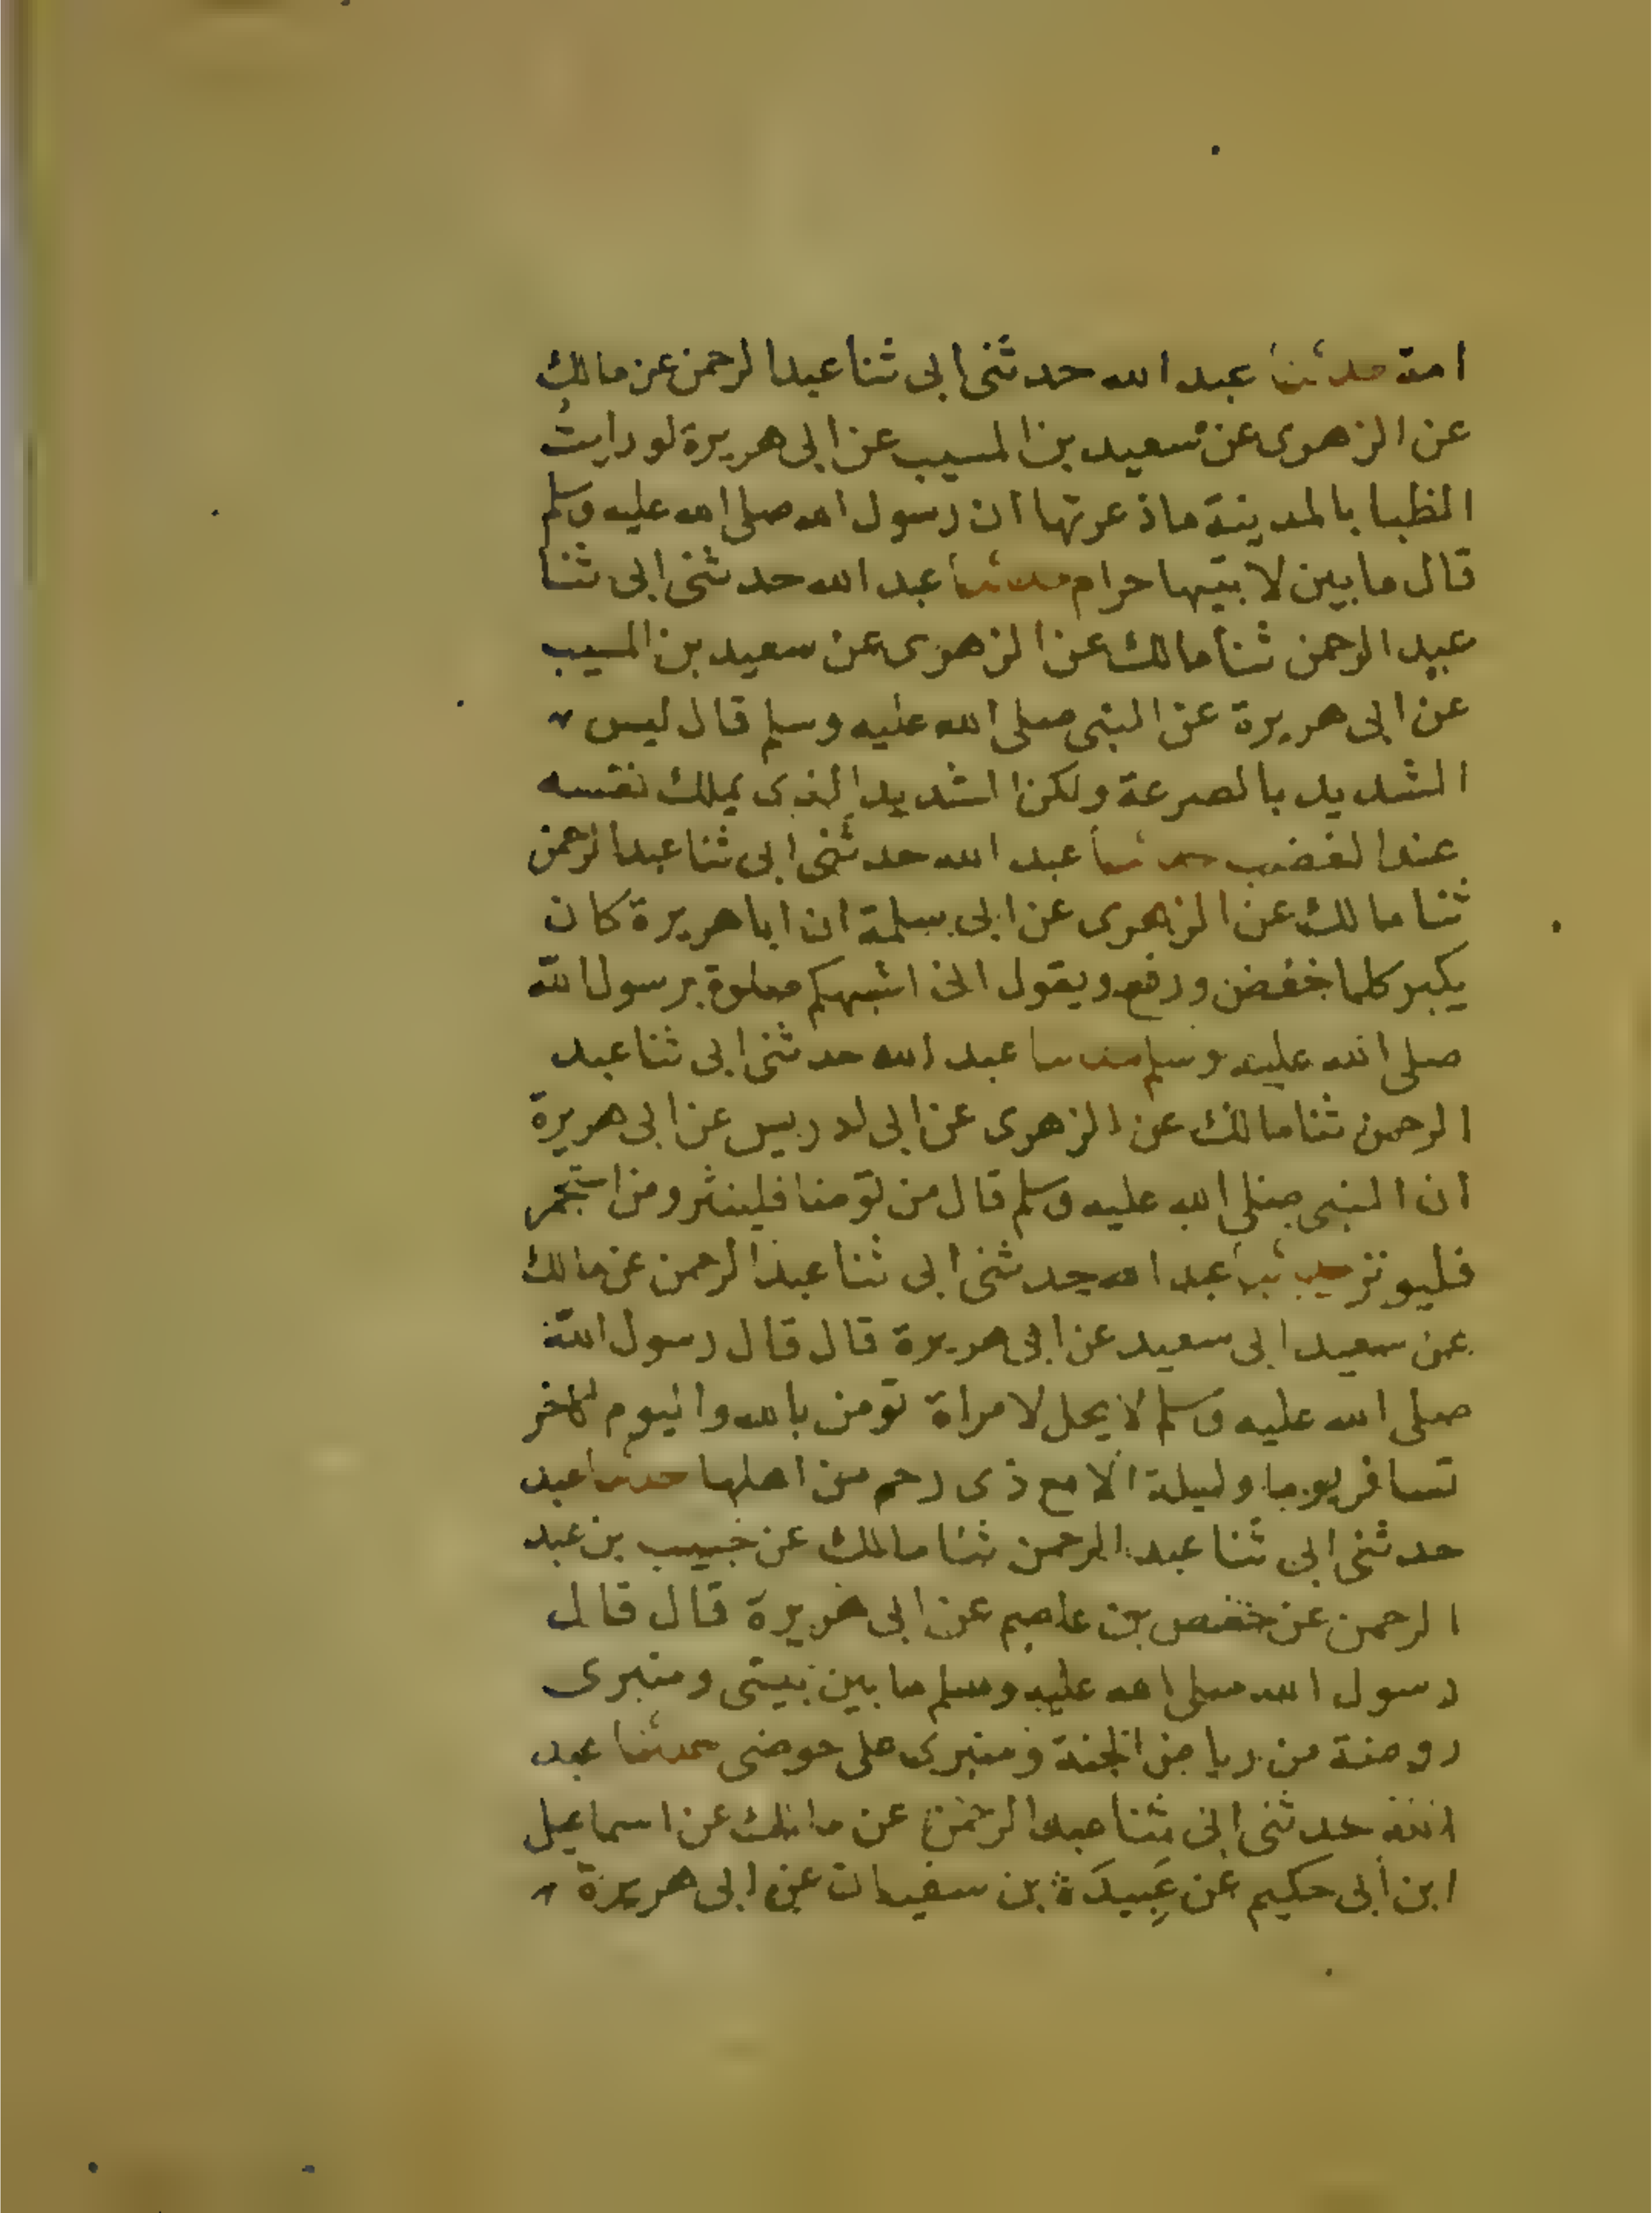 امة حدثنا عبد الله حدثنى ابى ثنا عبد الرحمن عن مالك
عن الزهرى عن سعيد بن المسيب عن ابى هريرة لو رايتُ
الظبا بالمدينة ما ذعرتها ان رسول الله صلى الله عليه وسلم
قال ما بين لابتيها حرام حدثنا عبد الله حدثنى ابى ثنا
عبد الرحمن ثنا مالك عن الزهرى عن سعيد بن المسيب
عن ابى هريرة عن النبى صلى الله عليه وسلم قال ليس
الشديد بالصرعة ولكن الشديد الذى يملك نفسه
عند الغضب حدثنا عبد الله حدثنى ابى ثنا عبد الرحمن
ثنا مالك عن الزهرى عن ابى سلمة ان ابا هريرة كان
يكبر كلما خفض ورفع ويقول انى اشبهكم صلوة برسول الله
صلى الله عليه وسلم حدثنا عبد الله حدثنى ابى ثنا عبد
الرحمن ثنا مالك عن الزهرى عن ابى ادريس عن ابى هريرة
ان النبى صلى الله عليه وسلم قال من توضا فلينثر ومن استجمر
فليوتر حدثنا عبد الله حدثنى ابى ثنا عبد الرحمن عن مالك
عن سعيد ابى سعيد عن ابى هريرة قال قال رسول الله
صلى الله عليه وسلم لا يحل لامراة تومن بالله واليوم الاخر
تسافر يوما وليلة الا مع ذى رحم من اهلها حدثنا عبد
حدثنى ابى ثنا عبد الرحمن ثنا مالك عن خبيب بن عبد
الرحمن عن حفص بن عاصم عن ابى هريرة قال قال
رسول الله صلى الله عليه وسلم ما بين بيتى ومنبرى
روضة من رياض الجنة ومنبرى على حوضى حدثنا عبد
الله حدثنى ابى ثنا عبد الرحمن عن مالك عن اسماعيل
ابن ابى حكيم عن عَبِيدَة بن سفيان عن ابى هريرة